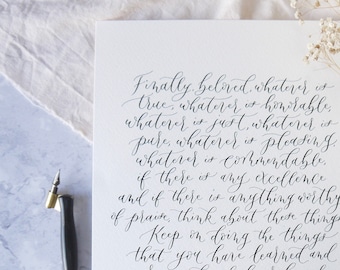 Finally, beloved, whatever is
true, whatever is honorable,
whatever is just, whatever is
pure, whatever is pleasing,
whatever is commendable,
if there is any excellence
and if there is anything worthy
of praise, think about these things.
Keep on doing the things
that you have learned and